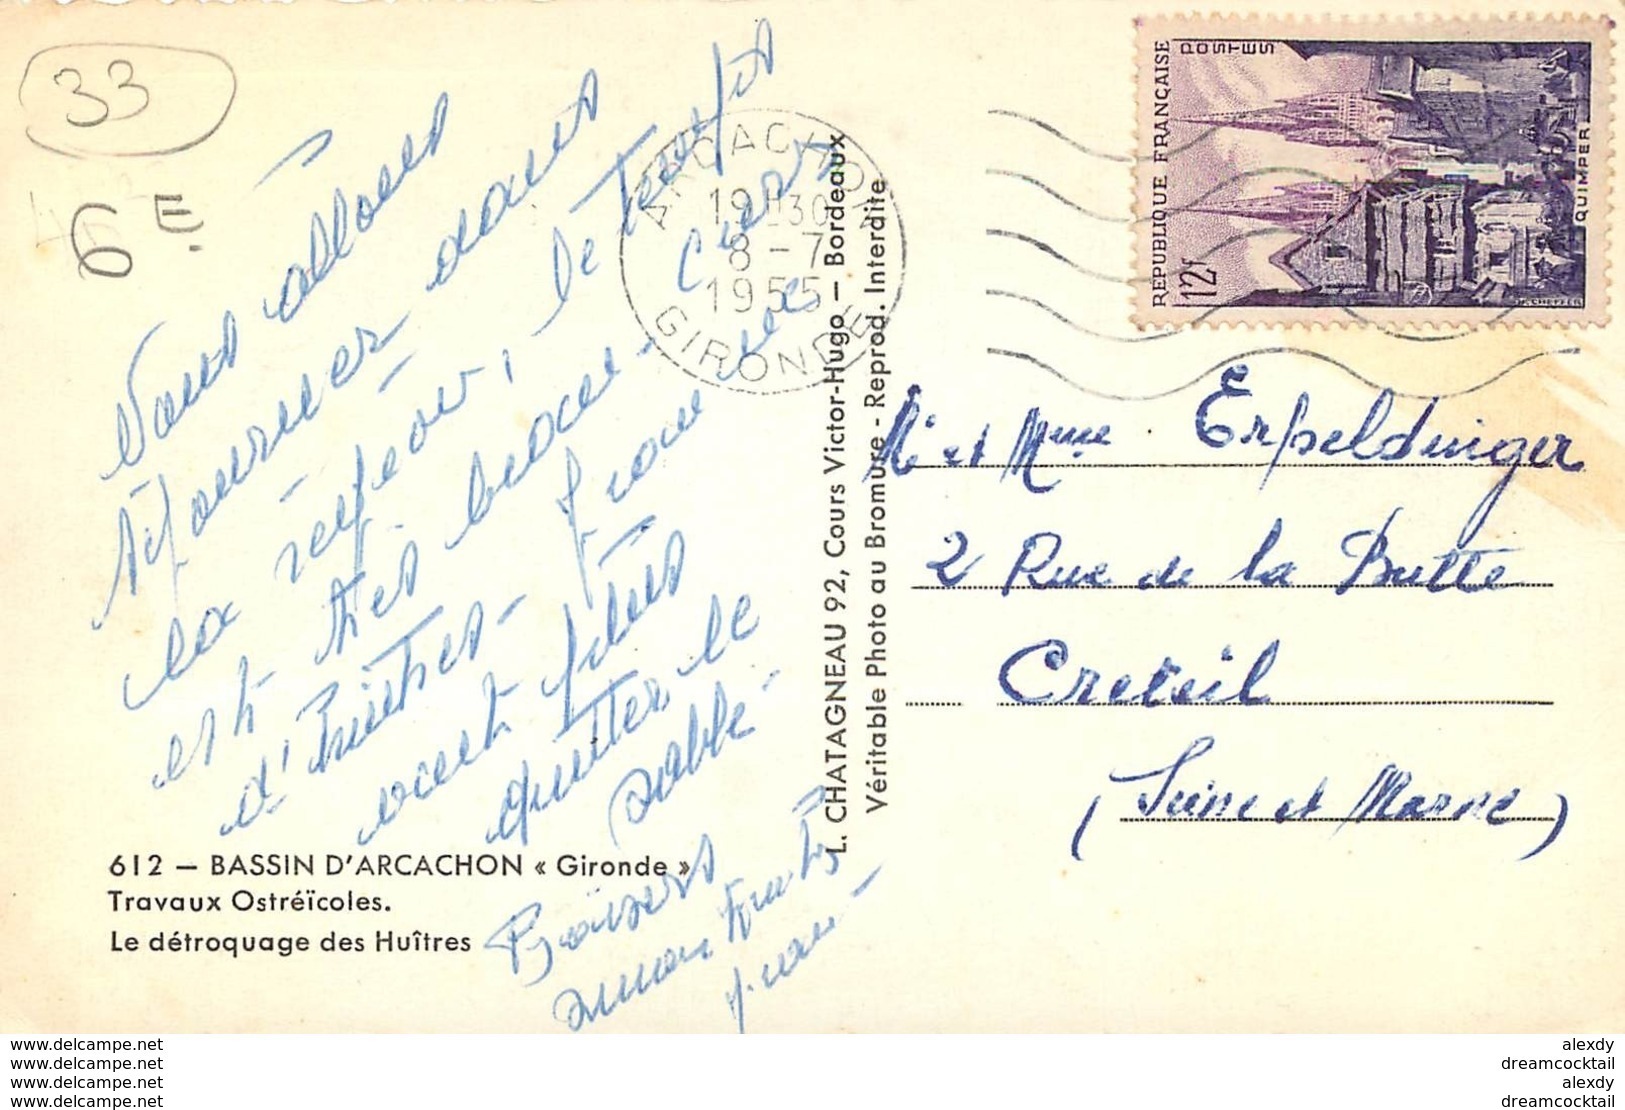 33
6E.
Nous allons
séjourner dans
la région, le temps
est très beau.
d'huîtres - Jean ne
veut plus
quitter le
sable -
Baisers
Jean -
612 — BASSIN D'ARCACHON « Gironde »
Travaux Ostréïcoles.
Le détroquage des Huîtres
L. CHATAGNEAU 92, Cours Victor-Hugo — Bordeaux
Véritable Photo au Bromure - Reprod. Interdite
ARCACHON
19H30
8-7
1955
GIRONDE
REPUBLIQUE FRANÇAISE
POSTES
12f
QUIMPER
Mr et Mme Erpeldinger
2 Rue de la Butte
Creteil
(Seine et Marne)
www.delcampe.net
www.delcampe.net
www.delcampe.net
www.delcampe.net
alexdy
dreamcocktail
alexdy
dreamcocktail